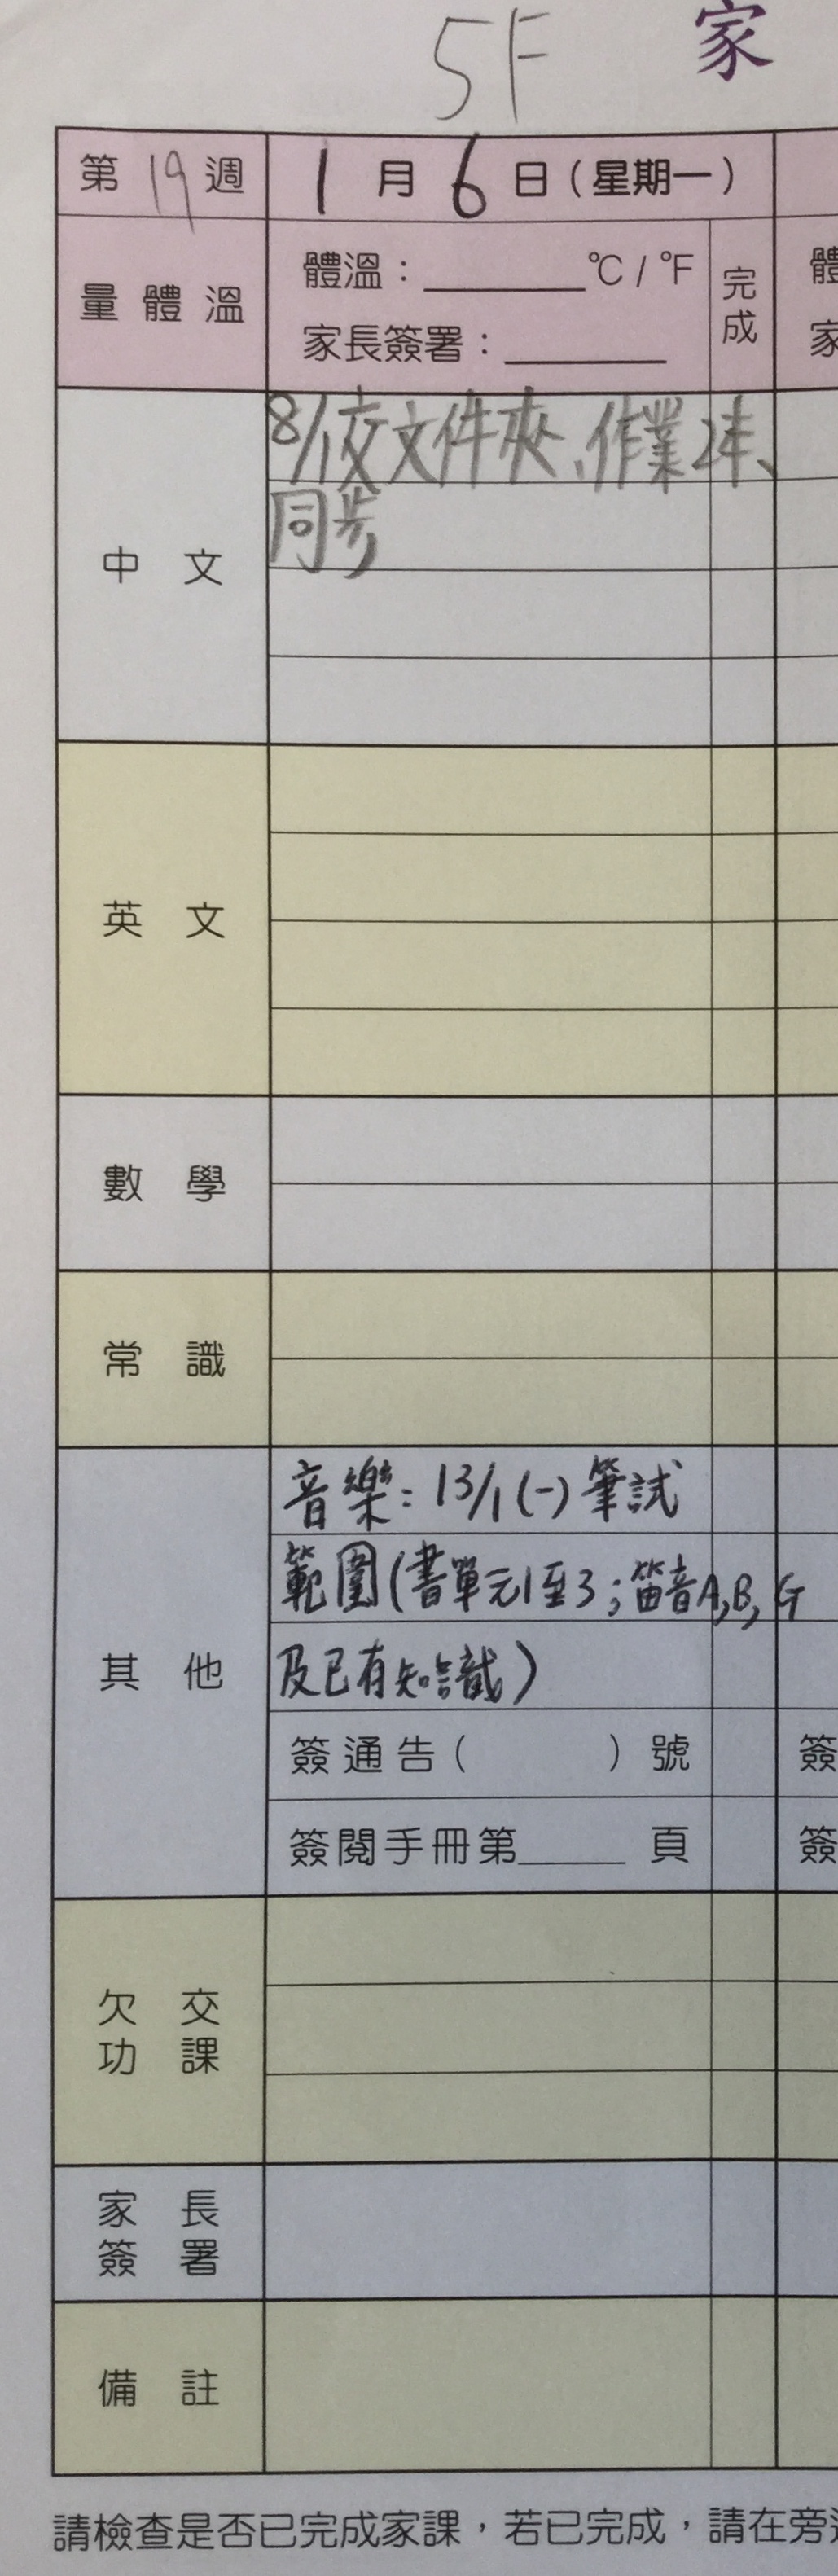 5F 家
第19週 1月6日(星期一)
量體溫 體溫：______℃/℉ 完成 體
家長簽署：______ 家
中文 8/1交文件夾、作業2本、
同步
英文
數學
常識
其他 音樂：13/1(一)筆試
範圍(書單元1至3；笛音A,B,G
及已有知識)
簽通告( )號 簽
簽閱手冊第____頁 簽
欠交
功課
家長
簽署
備註
請檢查是否已完成家課，若已完成，請在旁